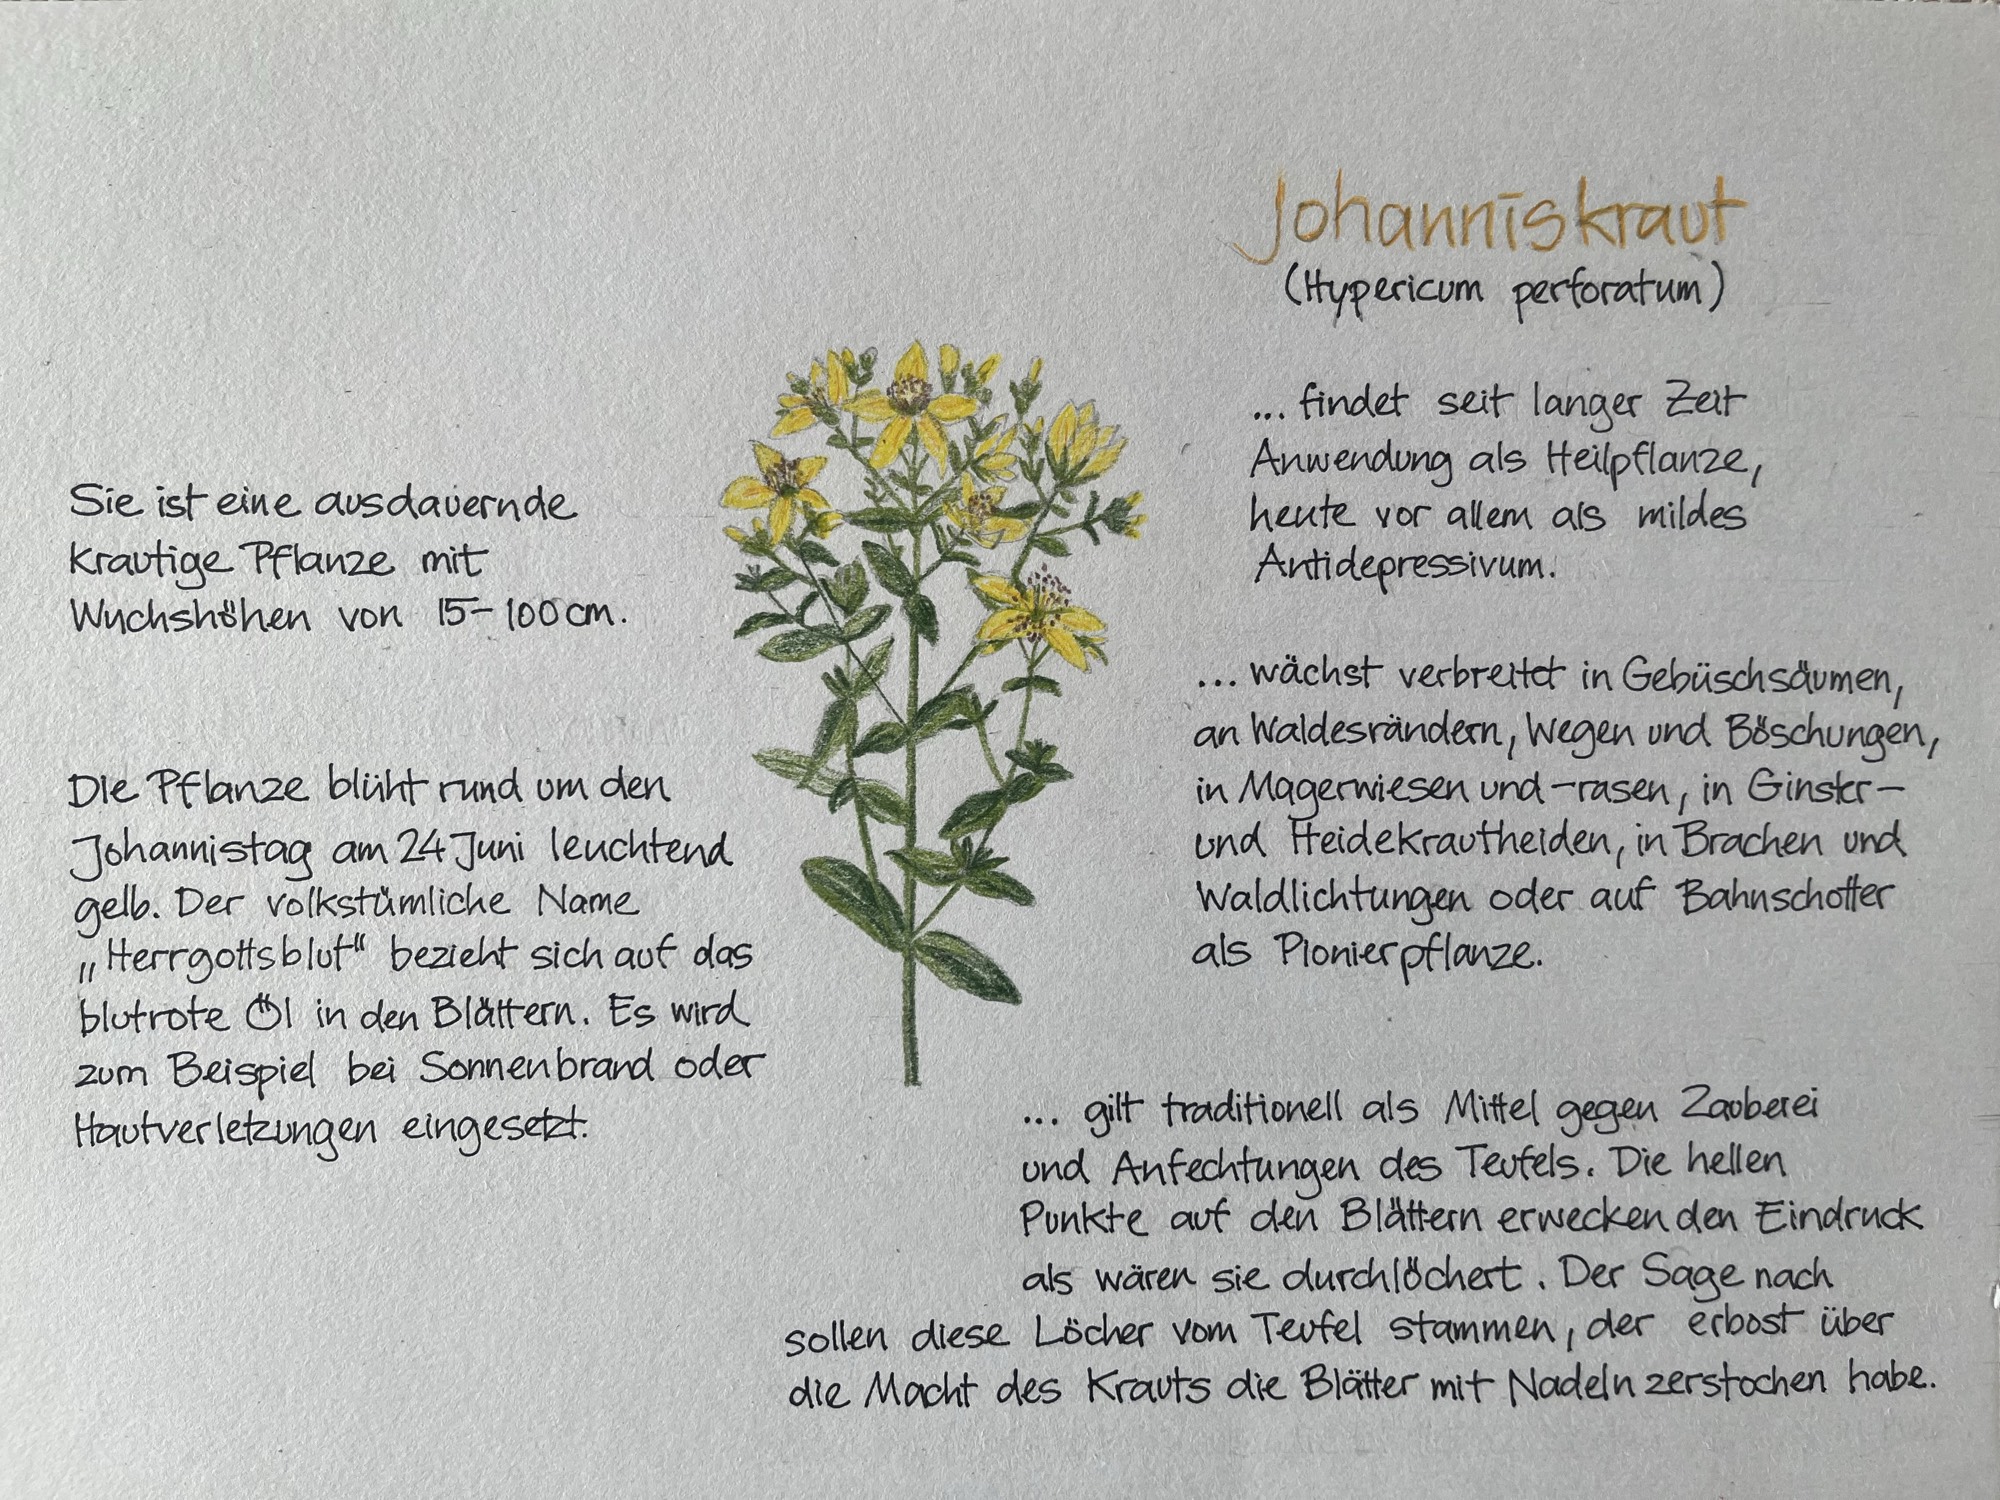 Johanniskraut
(Hypericum perforatum)
... findet seit langer Zeit
Anwendung als Heilpflanze,
heute vor allem als mildes
Antidepressivum.
... wächst verbreitet in Gebüschsäumen,
an Waldesrändern, Wegen und Böschungen,
in Magerwiesen und -rasen, in Ginster-
und Heidekrautheiden, in Brachen und
Waldlichtungen oder auf Bahnschotter
als Pionierpflanze.
... gilt traditionell als Mittel gegen Zauberei
und Anfechtungen des Teufels. Die hellen
Punkte auf den Blättern erwecken den Eindruck
als wären sie durchlöchert. Der Sage nach
sollen diese Löcher vom Teufel stammen, der erbost über
die Macht des Krauts die Blätter mit Nadeln zerstochen habe.
Sie ist eine ausdauernde
krautige Pflanze mit
Wuchshöhen von 15-100cm.
Die Pflanze blüht rund um den
Johannistag am 24 Juni leuchtend
gelb. Der volkstümliche Name
„Herrgottsblut“ bezieht sich auf das
blutrote Öl in den Blättern. Es wird
zum Beispiel bei Sonnenbrand oder
Hautverletzungen eingesetzt.